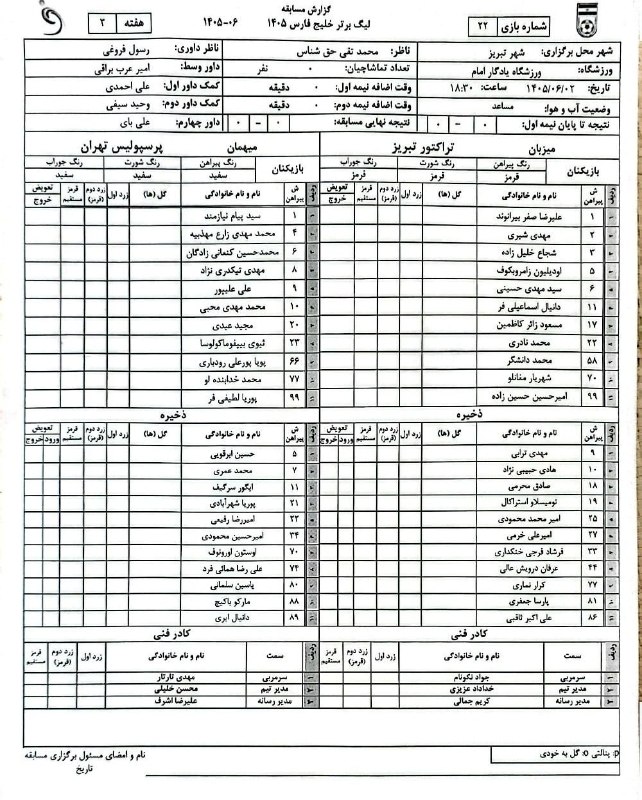 گزارش مسابقه
لیگ برتر خلیج فارس ۱۴۰۵ ۰۶-۱۴۰۵
شماره بازی ۲۲
هفته ۳
شهر محل برگزاری: شهر تبریز
ناظر: محمد تقی حق شناس
ناظر داوری: رسول فروغی
ورزشگاه: ورزشگاه یادگار امام
تعداد تماشاچیان: ۰ نفر
داور وسط: امیر عرب براقی
تاریخ: ۱۴۰۵/۰۶/۰۲ ساعت: ۱۸:۳۰
وقت اضافه نیمه اول: ۰ دقیقه
کمک داور اول: علی احمدی
وضعیت آب و هوا: مساعد
وقت اضافه نیمه دوم: ۰ دقیقه
کمک داور دوم: وحید سیفی
نتیجه تا پایان نیمه اول: ۰ - ۰
نتیجه نهایی مسابقه: ۰ - ۰
داور چهارم: علی بای
میزبان تراکتور تبریز
بازیکنان رنگ پیراهن رنگ شورت رنگ جوراب
قرمز قرمز قرمز
ردیف ش پیراهن نام و نام خانوادگی گل (ها) زرد اول زرد دوم (قرمز) قرمز مستقیم تعویض خروج
۱ علیرضا صفر بیرانوند
۲ مهدی شیری
۳ شجاع خلیل زاده
۵ اودیلیون زامروبکوف
۶ سید مهدی حسینی
۱۱ دانیال اسماعیلی فر
۱۷ مسعود زائر کاظمین
۲۲ محمد نادری
۵۸ محمد دانشگر
۷۰ شهریار مغانلو
۹۹ امیرحسین حسین زاده
ذخیره
ردیف ش پیراهن نام و نام خانوادگی گل (ها) زرد اول زرد دوم (قرمز) قرمز مستقیم تعویض ورود خروج
۹ مهدی ترابی
۱۰ هادی حبیبی نژاد
۱۸ صادق محرمی
۱۹ تومیسلاو استراکال
۲۵ امیر محمد محمودی
۲۷ امیرعلی خرمی
۳۳ فرشاد فرجی ختکداری
۴۴ عرفان درویش عالی
۷۷ کرار نماری
۸۱ پارسا جعفری
۸۶ علی اکبر ثاقبی
کادر فنی
ردیف سمت نام و نام خانوادگی زرد اول زرد دوم (قرمز) قرمز مستقیم
۱ سرمربی جواد نکونام
۲ مدیر تیم خداداد عزیزی
۳ مدیر رسانه کریم جمالی
میهمان پرسپولیس تهران
بازیکنان رنگ پیراهن رنگ شورت رنگ جوراب
سفید سفید سفید
ردیف ش پیراهن نام و نام خانوادگی گل (ها) زرد اول زرد دوم (قرمز) قرمز مستقیم تعویض خروج
۱ سید پیام نیازمند
۴ محمد مهدی زارع مهذبیه
۶ محمدحسین کنعانی زادگان
۸ مهدی تیکدری نژاد
۹ علی علیپور
۱۰ محمد مهدی محبی
۲۰ مجید عیدی
۲۳ ثیوی بیفوماکولوسا
۶۶ پویا پورعلی رودباری
۷۷ محمد خدابنده لو
۹۹ پوریا لطیفی فر
ذخیره
ردیف ش پیراهن نام و نام خانوادگی گل (ها) زرد اول زرد دوم (قرمز) قرمز مستقیم تعویض ورود خروج
۵ حسین ابرقویی
۷ محمد عمری
۱۱ ایگور سرگیف
۲۱ پوریا شهرآبادی
۲۲ امیررضا رفیعی
۳۴ امیرحسین محمودی
۷۰ اوستون اورونوف
۷۴ علی رضا همائی فرد
۸۰ یاسین سلمانی
۸۸ مارکو باکیچ
۸۹ دانیال ایری
کادر فنی
ردیف سمت نام و نام خانوادگی زرد اول زرد دوم (قرمز) قرمز مستقیم
۱ سرمربی مهدی تارتار
۲ مدیر تیم محسن خلیلی
۳ مدیر رسانه علیرضا اشرف
p: پنالتی O: گل به خودی
نام و امضای مسئول برگزاری مسابقه
تاریخ